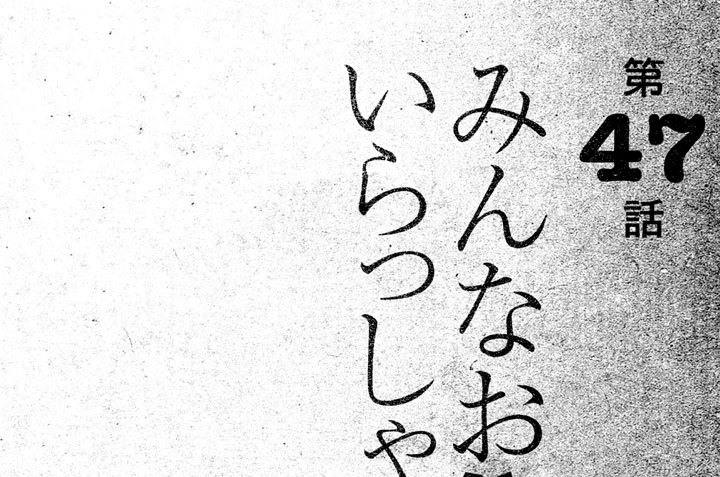 第47話
みんなお
いらっしゃ